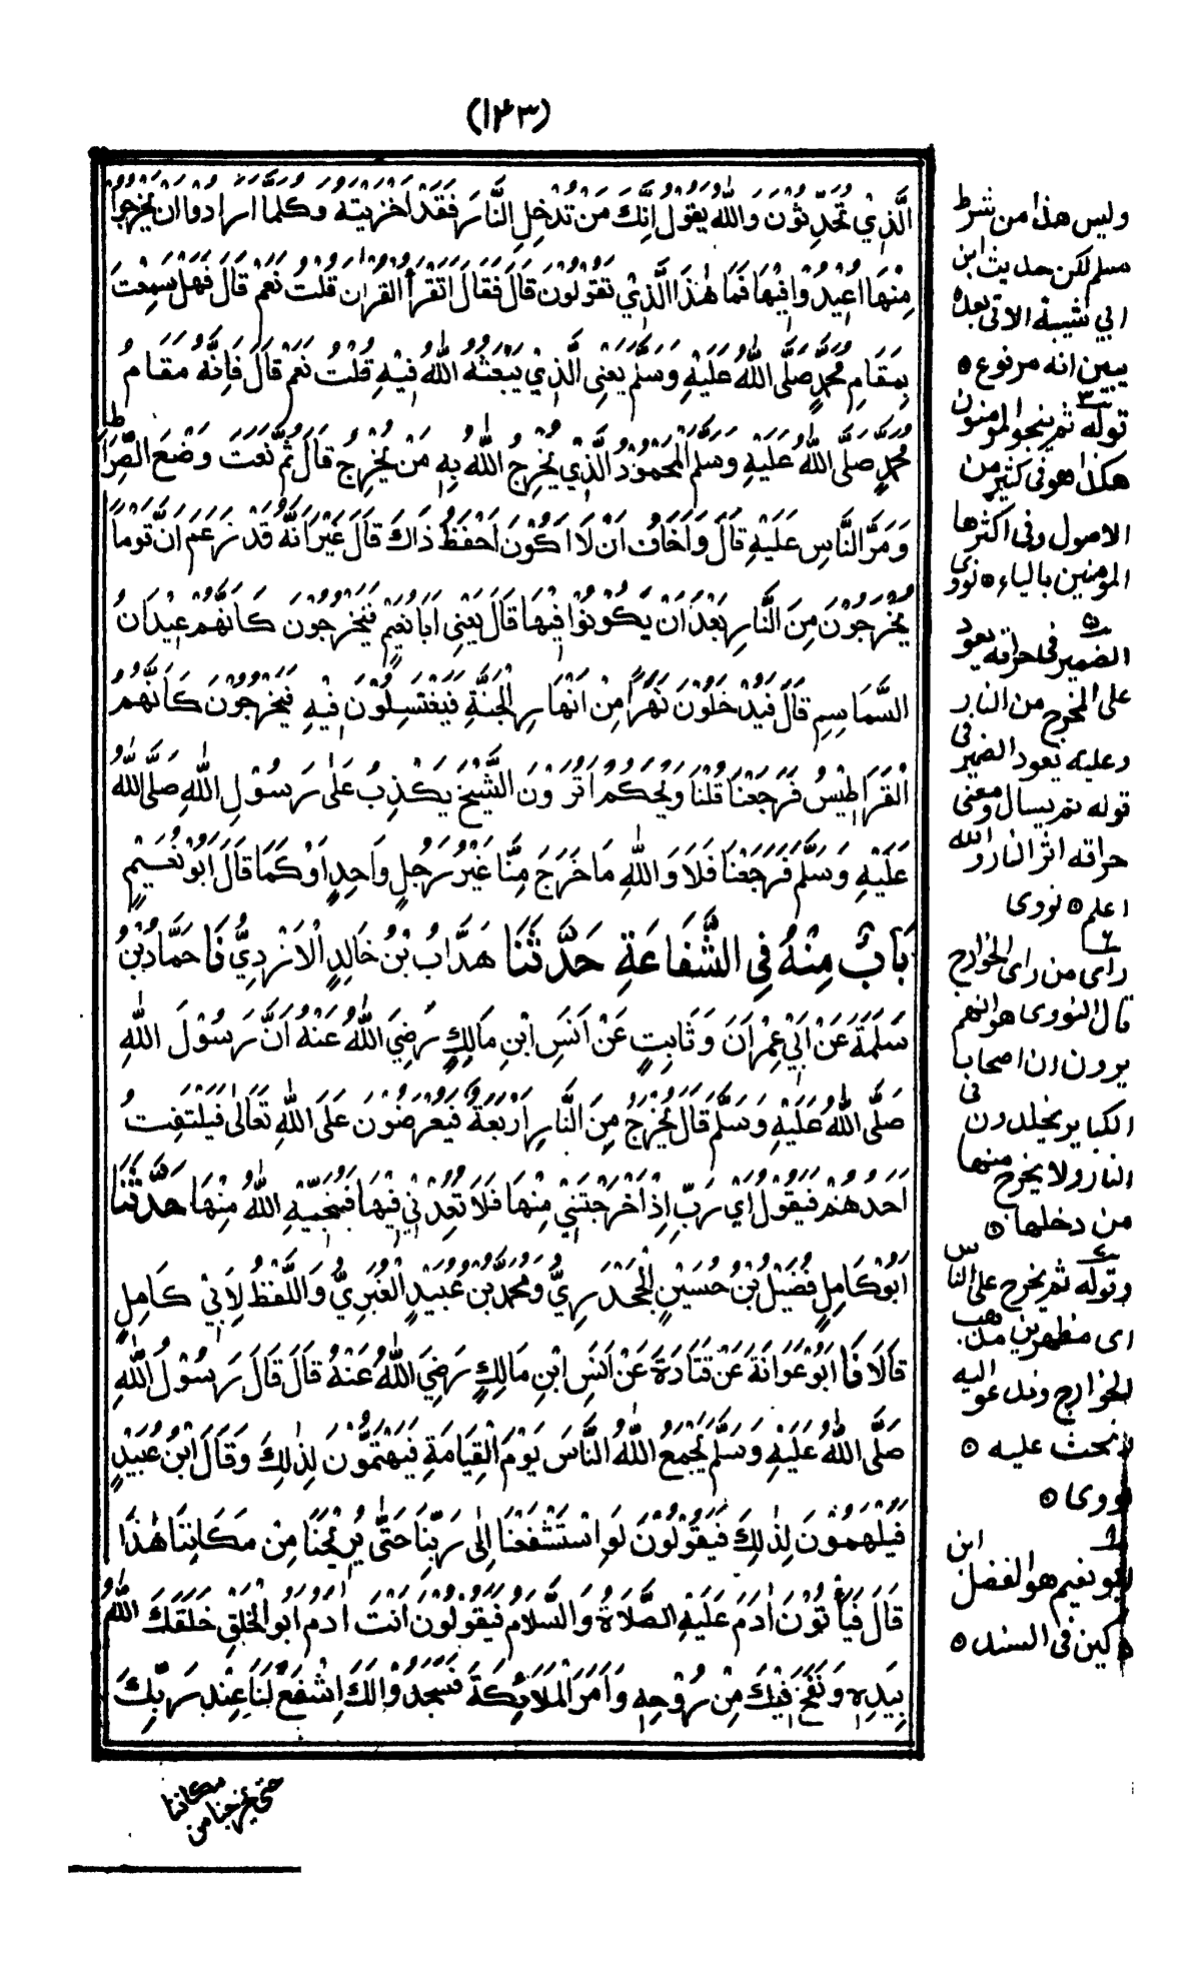 (١٢٣)
الَّذِيْ تُحَدِّثُوْنَ وَاللهُ يَقُوْلُ اِنَّكَ مَنْ تُدْخِلِ النَّارَ فَقَدْ اَخْزَيْتَهُ وَكُلَّمَا اَرَادُوْا اَنْ يَخْرُجُوْا
مِنْهَا اُعِيْدُوْا فِيْهَا فَمَا هٰذَا الَّذِيْ تَقُوْلُوْنَ قَالَ فَقَالَ اَتَقْرَأُ الْقُرْاٰنَ قُلْتُ نَعَمْ قَالَ فَهَلْ سَمِعْتَ
بِمَقَامِ مُحَمَّدٍ صَلَّى اللهُ عَلَيْهِ وَسَلَّمَ يَعْنِى الَّذِيْ يَبْعَثُهُ اللهُ فِيْهِ قُلْتُ نَعَمْ قَالَ فَاِنَّهُ مَقَامُ
مُحَمَّدٍ صَلَّى اللهُ عَلَيْهِ وَسَلَّمَ الْمَحْمُوْدُ الَّذِيْ يُخْرِجُ اللهُ بِهِ مَنْ يُخْرِجُ قَالَ ثُمَّ نَعَتَ وَضْعَ الصِّرَاطِ
وَمَرَّ النَّاسِ عَلَيْهِ قَالَ وَاَخَافُ اَنْ لَا اَكُوْنَ اَحْفَظُ ذَاكَ قَالَ غَيْرَ اَنَّهُ قَدْ زَعَمَ اَنَّ قَوْمًا
يَخْرُجُوْنَ مِنَ النَّارِ بَعْدَ اَنْ يَكُوْنُوْا فِيْهَا قَالَ يَعْنِى اَبَا نُعَيْمٍ فَيَخْرُجُوْنَ كَاَنَّهُمْ عِيْدَانُ
السَّمَاسِمِ قَالَ فَيَدْخُلُوْنَ نَهَرًا مِنْ اَنْهَارِ الْجَنَّةِ فَيَغْتَسِلُوْنَ فِيْهِ فَيَخْرُجُوْنَ كَاَنَّهُمُ
الْقَرَاطِيْسُ فَرَجَعْنَا قُلْنَا وَيْحَكُمْ اَتُرَوْنَ الشَّيْخَ يَكْذِبُ عَلٰى رَسُوْلِ اللهِ صَلَّى اللهُ
عَلَيْهِ وَسَلَّمَ فَرَجَعْنَا فَلَا وَاللهِ مَا خَرَجَ مِنَّا غَيْرُ رَجُلٍ وَاحِدٍ اَوْ كَمَا قَالَ اَبُوْ نُعَيْمٍ
بَابٌ مِنْهُ فِي الشَّفَاعَةِ حَدَّثَنَا هَدَّابُ بْنُ خَالِدٍ الْاَزْدِيُّ نَا حَمَّادُ بْنُ
سَلَمَةَ عَنْ اَبِيْ عِمْرَانَ وَثَابِتٍ عَنْ اَنَسِ ابْنِ مَالِكٍ رَضِيَ اللهُ عَنْهُ اَنَّ رَسُوْلَ اللهِ
صَلَّى اللهُ عَلَيْهِ وَسَلَّمَ قَالَ يُخْرَجُ مِنَ النَّارِ اَرْبَعَةٌ فَيُعْرَضُوْنَ عَلَى اللهِ تَعَالٰى فَيَلْتَفِتُ
اَحَدُهُمْ فَيَقُوْلُ اَيْ رَبِّ اِذْ اَخْرَجْتَنِيْ مِنْهَا فَلَا تُعِدْنِيْ فِيْهَا فَيُنْجِيْهِ اللهُ مِنْهَا حَدَّثَنَا
اَبُوْ كَامِلٍ فُضَيْلُ بْنُ حُسَيْنٍ الْجَحْدَرِيُّ وَمُحَمَّدُ بْنُ عُبَيْدٍ الْغُبَرِيُّ وَاللَّفْظُ لِاَبِيْ كَامِلٍ
قَالَا نَا اَبُوْ عَوَانَةَ عَنْ قَتَادَةَ عَنْ اَنَسِ ابْنِ مَالِكٍ رَضِيَ اللهُ عَنْهُ قَالَ قَالَ رَسُوْلُ اللهِ
صَلَّى اللهُ عَلَيْهِ وَسَلَّمَ يَجْمَعُ اللهُ النَّاسَ يَوْمَ الْقِيَامَةِ فَيَهْتَمُّوْنَ لِذٰلِكَ وَقَالَ ابْنُ عُبَيْدٍ
فَيُلْهَمُوْنَ لِذٰلِكَ فَيَقُوْلُوْنَ لَوِ اسْتَشْفَعْنَا اِلٰى رَبِّنَا حَتّٰى يُرِيْحَنَا مِنْ مَكَانِنَا هٰذَا
قَالَ فَيَأْتُوْنَ اٰدَمَ عَلَيْهِ الصَّلَاةُ وَالسَّلَامُ فَيَقُوْلُوْنَ اَنْتَ اٰدَمُ اَبُو الْخَلْقِ خَلَقَكَ اللهُ
بِيَدِهِ وَنَفَخَ فِيْكَ مِنْ رُوْحِهِ وَاَمَرَ الْمَلَائِكَةَ فَسَجَدُوْا لَكَ اِشْفَعْ لَنَا عِنْدَ رَبِّكَ
حتى يريحنا من مكاننا
وليس هذا من شرط
مسلم لكن حديث ابن
ابي شيبة الاتى بعده
يبين انه مرفوع ٥
٣
قوله ثم ينجو المومنون
هكذا هو فى كثير من
الاصول وفى اكثرها
المؤمنين بالياء ٥ نووى
٥
الضمير فى حراقه يعود
على المخرج من النار
وعليه يعود الضمير فى
قوله ثم يسال ومعنى
حراقه اثر النار والله
اعلم ٥ نووى
٦
راى من راى الخوارج
قال النووى هو انهم
يرون ان اصحاب
الكباير يخلدون فى
النار ولا يخرج منها
من دخلها ٥
٤
وقوله ثم نخرج على الناس
اى مظهرين مذهب
الخوارج وندعو اليه
ونحث عليه ٥
نووى ٥
١
ابو نعيم هو الفضل ابن
دكين فى السند ٥